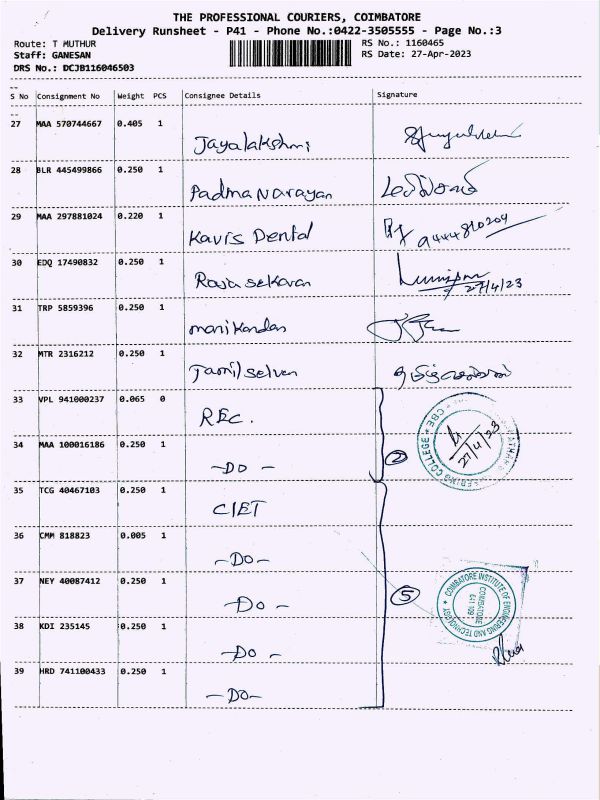 THE PROFESSIONAL COURIERS, COIMBATORE
Delivery Runsheet - P41 - Phone No.:0422-3505555 - Page No.:3
Route: T MUTHUR
RS No.: 1160465
Staff: GANESAN
RS Date: 27-Apr-2023
DRS No.: DCJB116046503
S No Consignment No Weight PCS Consignee Details Signature
27 MAA 570744667 0.405 1 Jayalakshmi
28 BLR 445499866 0.250 1 Padma Narayan
29 MAA 297881024 0.220 1 Kavis Dental 9444810209
30 EDQ 17490832 0.250 1 Rajasekaran 27/4/23
31 TRP 5859396 0.250 1 Manikandan
32 MTR 2316212 0.250 1 Tamilselvan
33 VPL 941000237 0.065 0 REC.
34 MAA 100016186 0.250 1 -DO-
2
COLLEGE * CBE
27/4/23
35 TCG 40467103 0.250 1 CIET
36 CMM 818823 0.005 1 -DO-
37 NEY 40087412 0.250 1 -DO-
5
COIMBATORE INSTITUTE OF ENGINEERING AND TECHNOLOGY *
COIMBATORE
641 109
38 KDI 235145 0.250 1 -DO-
39 HRD 741100433 0.250 1 -DO-